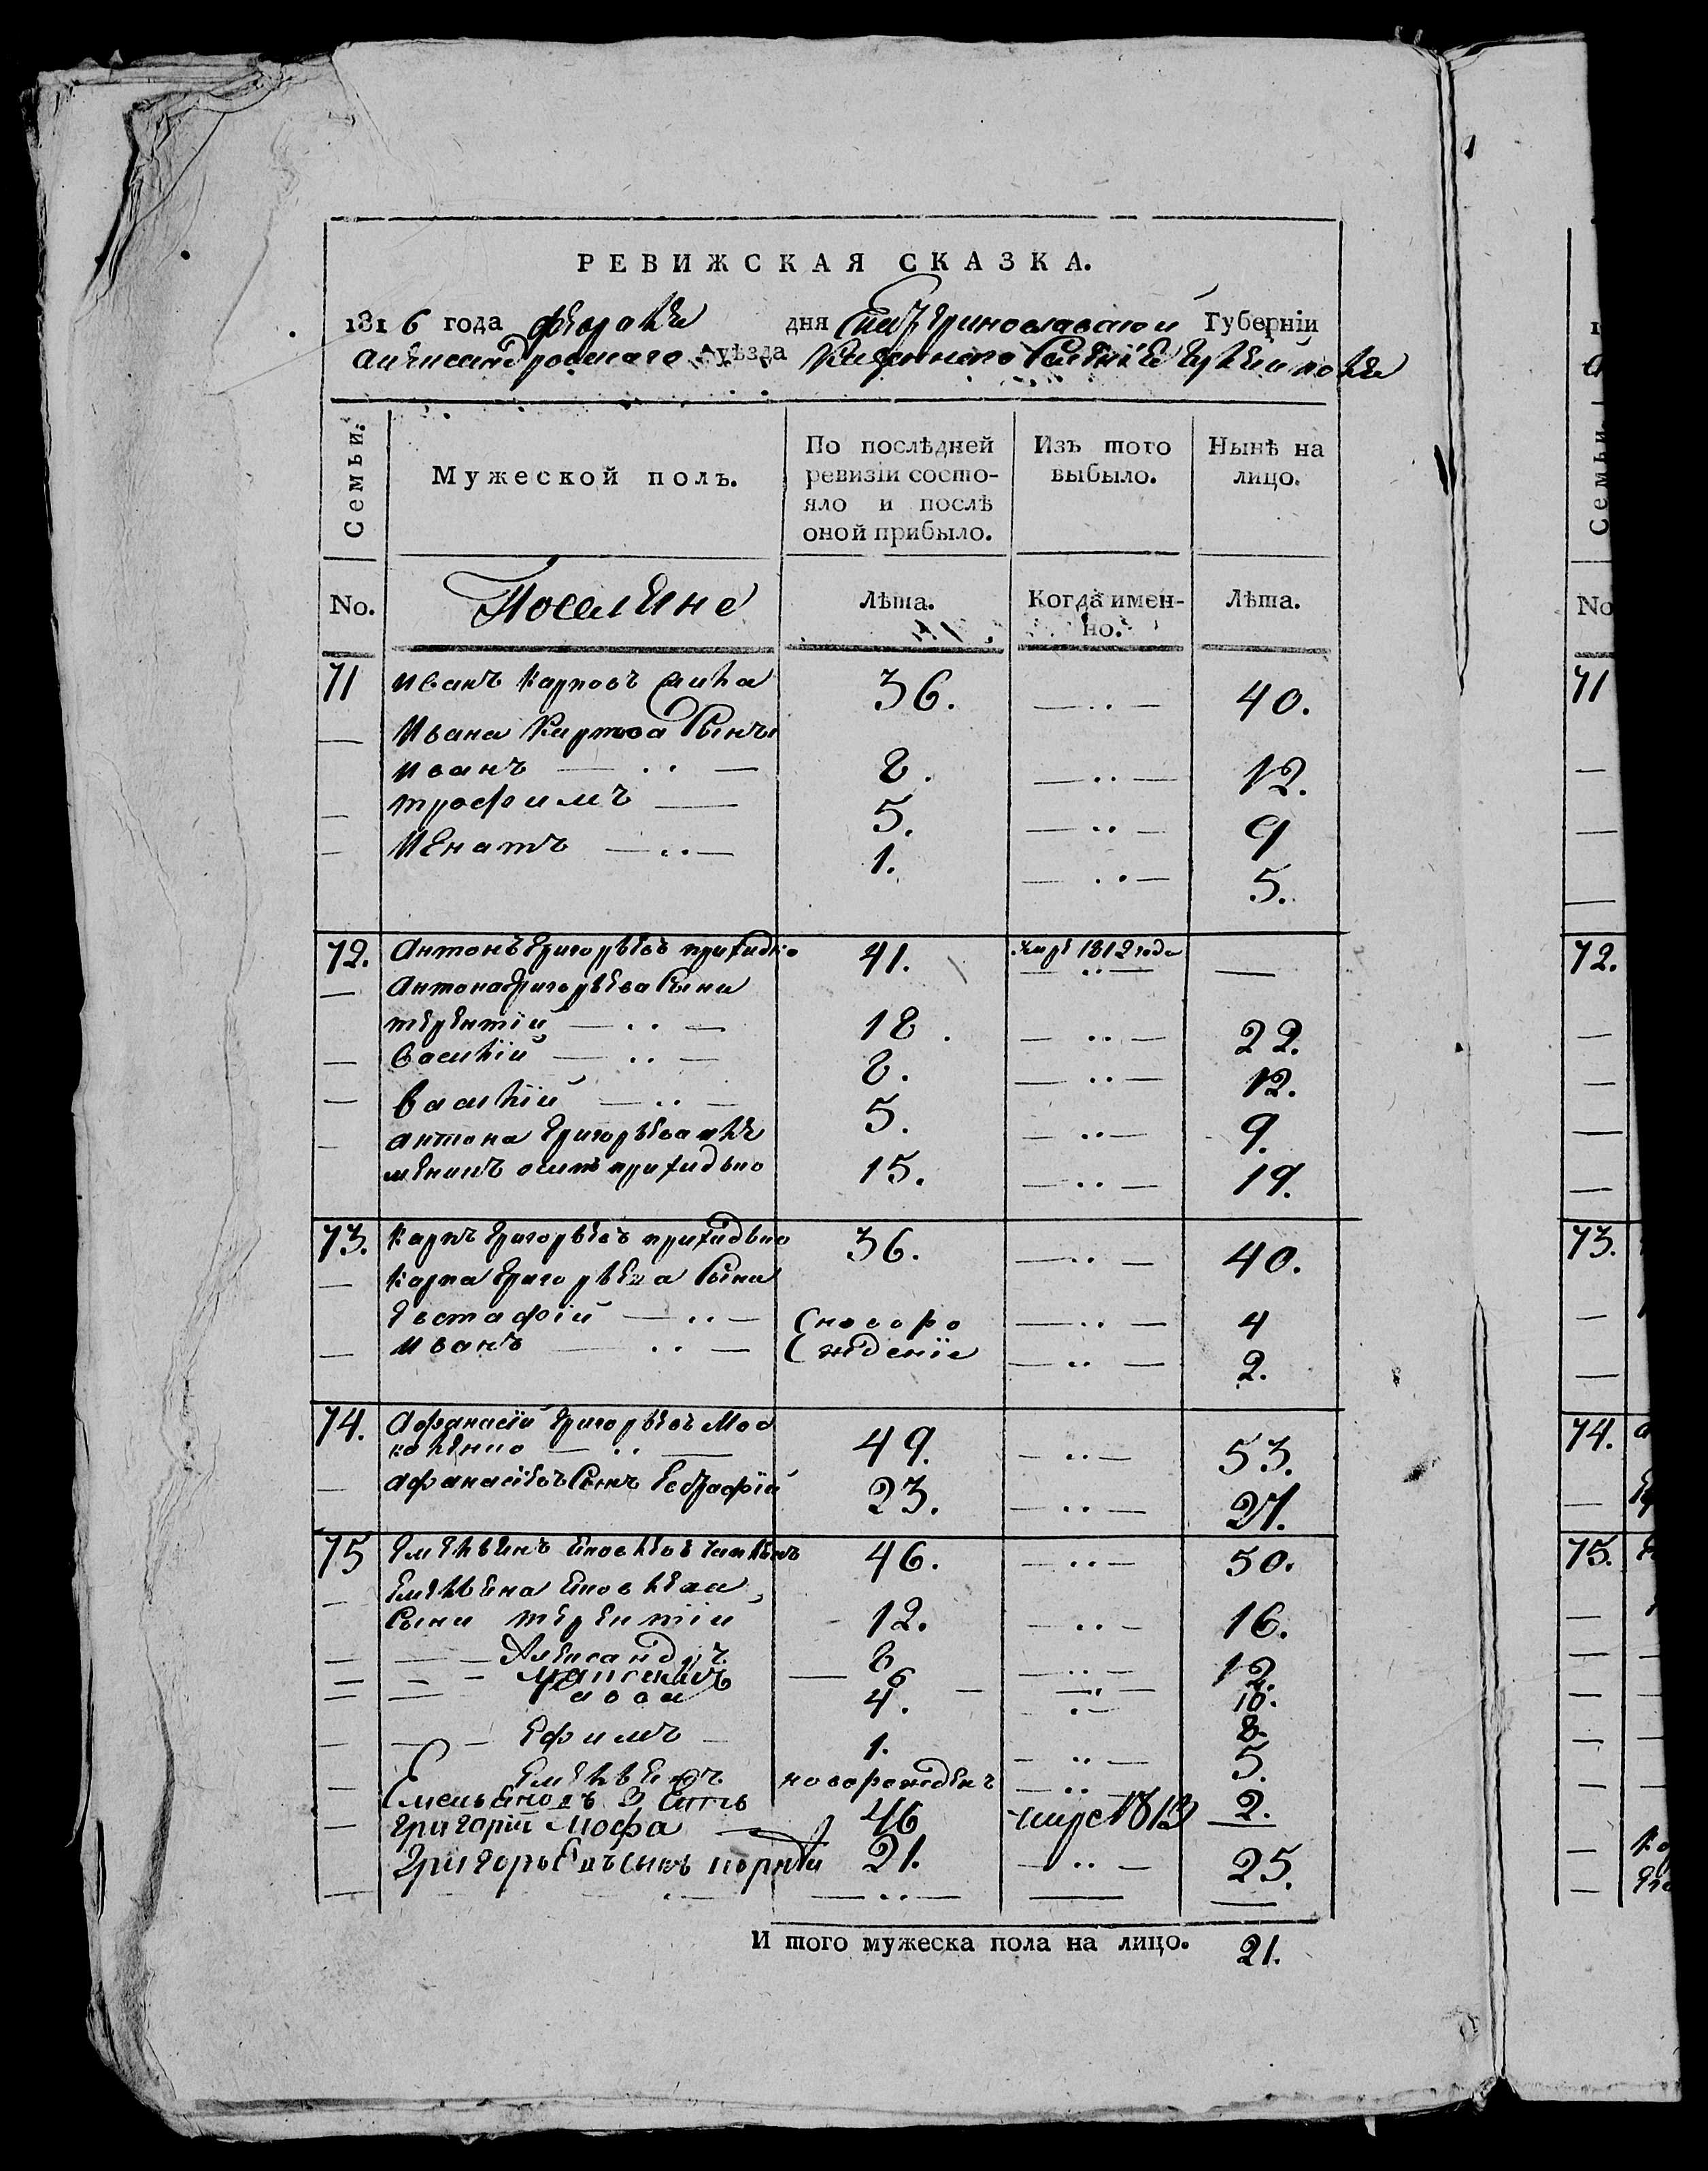 РЕВИЖСКАЯ СКАЗКА.
1816 года февраля дня Екатеринославской Губерніи
Александровскаго уѣзда Казеннаго Селенія
Семьи.
Мужеской полъ.
По послѣдней ревизіи состо-
яло и послѣ
оной прибыло.
Изъ того
выбыло.
Нынѣ на
лицо.
No.
Поселяне
Лѣта.
Когда имен-
но.
Лѣта.
71 Иванъ Карповъ 36. — .. — 40.
— Ивана Карпова Сыны
Иванъ — .. — 8. — .. — 12.
— трофимъ — 5. — .. — 9
— Игнатъ — .. — 1. — .. — 5.
72. Антонъ Григорьевъ приходко 41. умре 1812 года — .. — —
— Антона Григорьева Сыни
терентій — .. — 18. — .. — 22.
— Василій — .. — 8. — .. — 12.
— Василій — .. — 5. — .. — 9.
— антона Григорьева пле
меникъ осипъ приходько 15. — .. — 19.
73. Карпъ Григорьевъ приходько 36. — .. — 40.
— Карпа Григорьева Сыни
Евстафій — .. — новоро — .. — 4
— Иванъ — .. — жденіе — .. — 2.
74. Афанасій Григорьевъ Мос
каленко — .. — 49. — .. — 53.
— афанасіевъ Сынъ Евстафій 23. — .. — 27.
75 Емельянъ Яковлевъ 46. — .. — 50.
— Емельяна Яковлева
Сыни терентіи 12. — .. — 16.
— — — Александръ 8 — .. — 12.
— — — Максимъ — 6 — — .. — 10.
— — Савва 4. .. — 8.
— — — Ефимъ — 1. — .. — 5.
— Емельянъ новорожденъ — .. 2.
Емельяновъ Зять
— Григорій Мосфа — 46 умре 1813 —
Григорьевъ сынъ 21. — .. — 25.
— .. — — .. — — —
И того мужеска пола на лицо. 21.
No
71
72.
73.
74.
75.